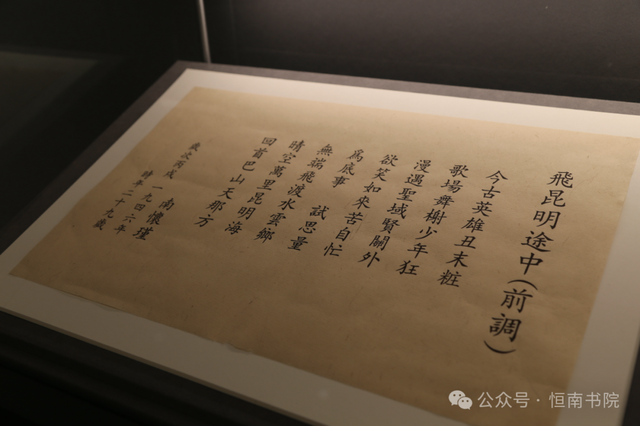 飛昆明途中(前調)
今古英雄丑末粧
歌場舞榭少年狂
漫過聖域賢關外
欲笑如來苦自忙
為底事　試思量
無端飛渡水雲鄉
晴空萬里昆明海
回首巴山天那方
歲次丙戌　一九四六年
南懷瑾
時年二十九歲
公众号·恒南书院